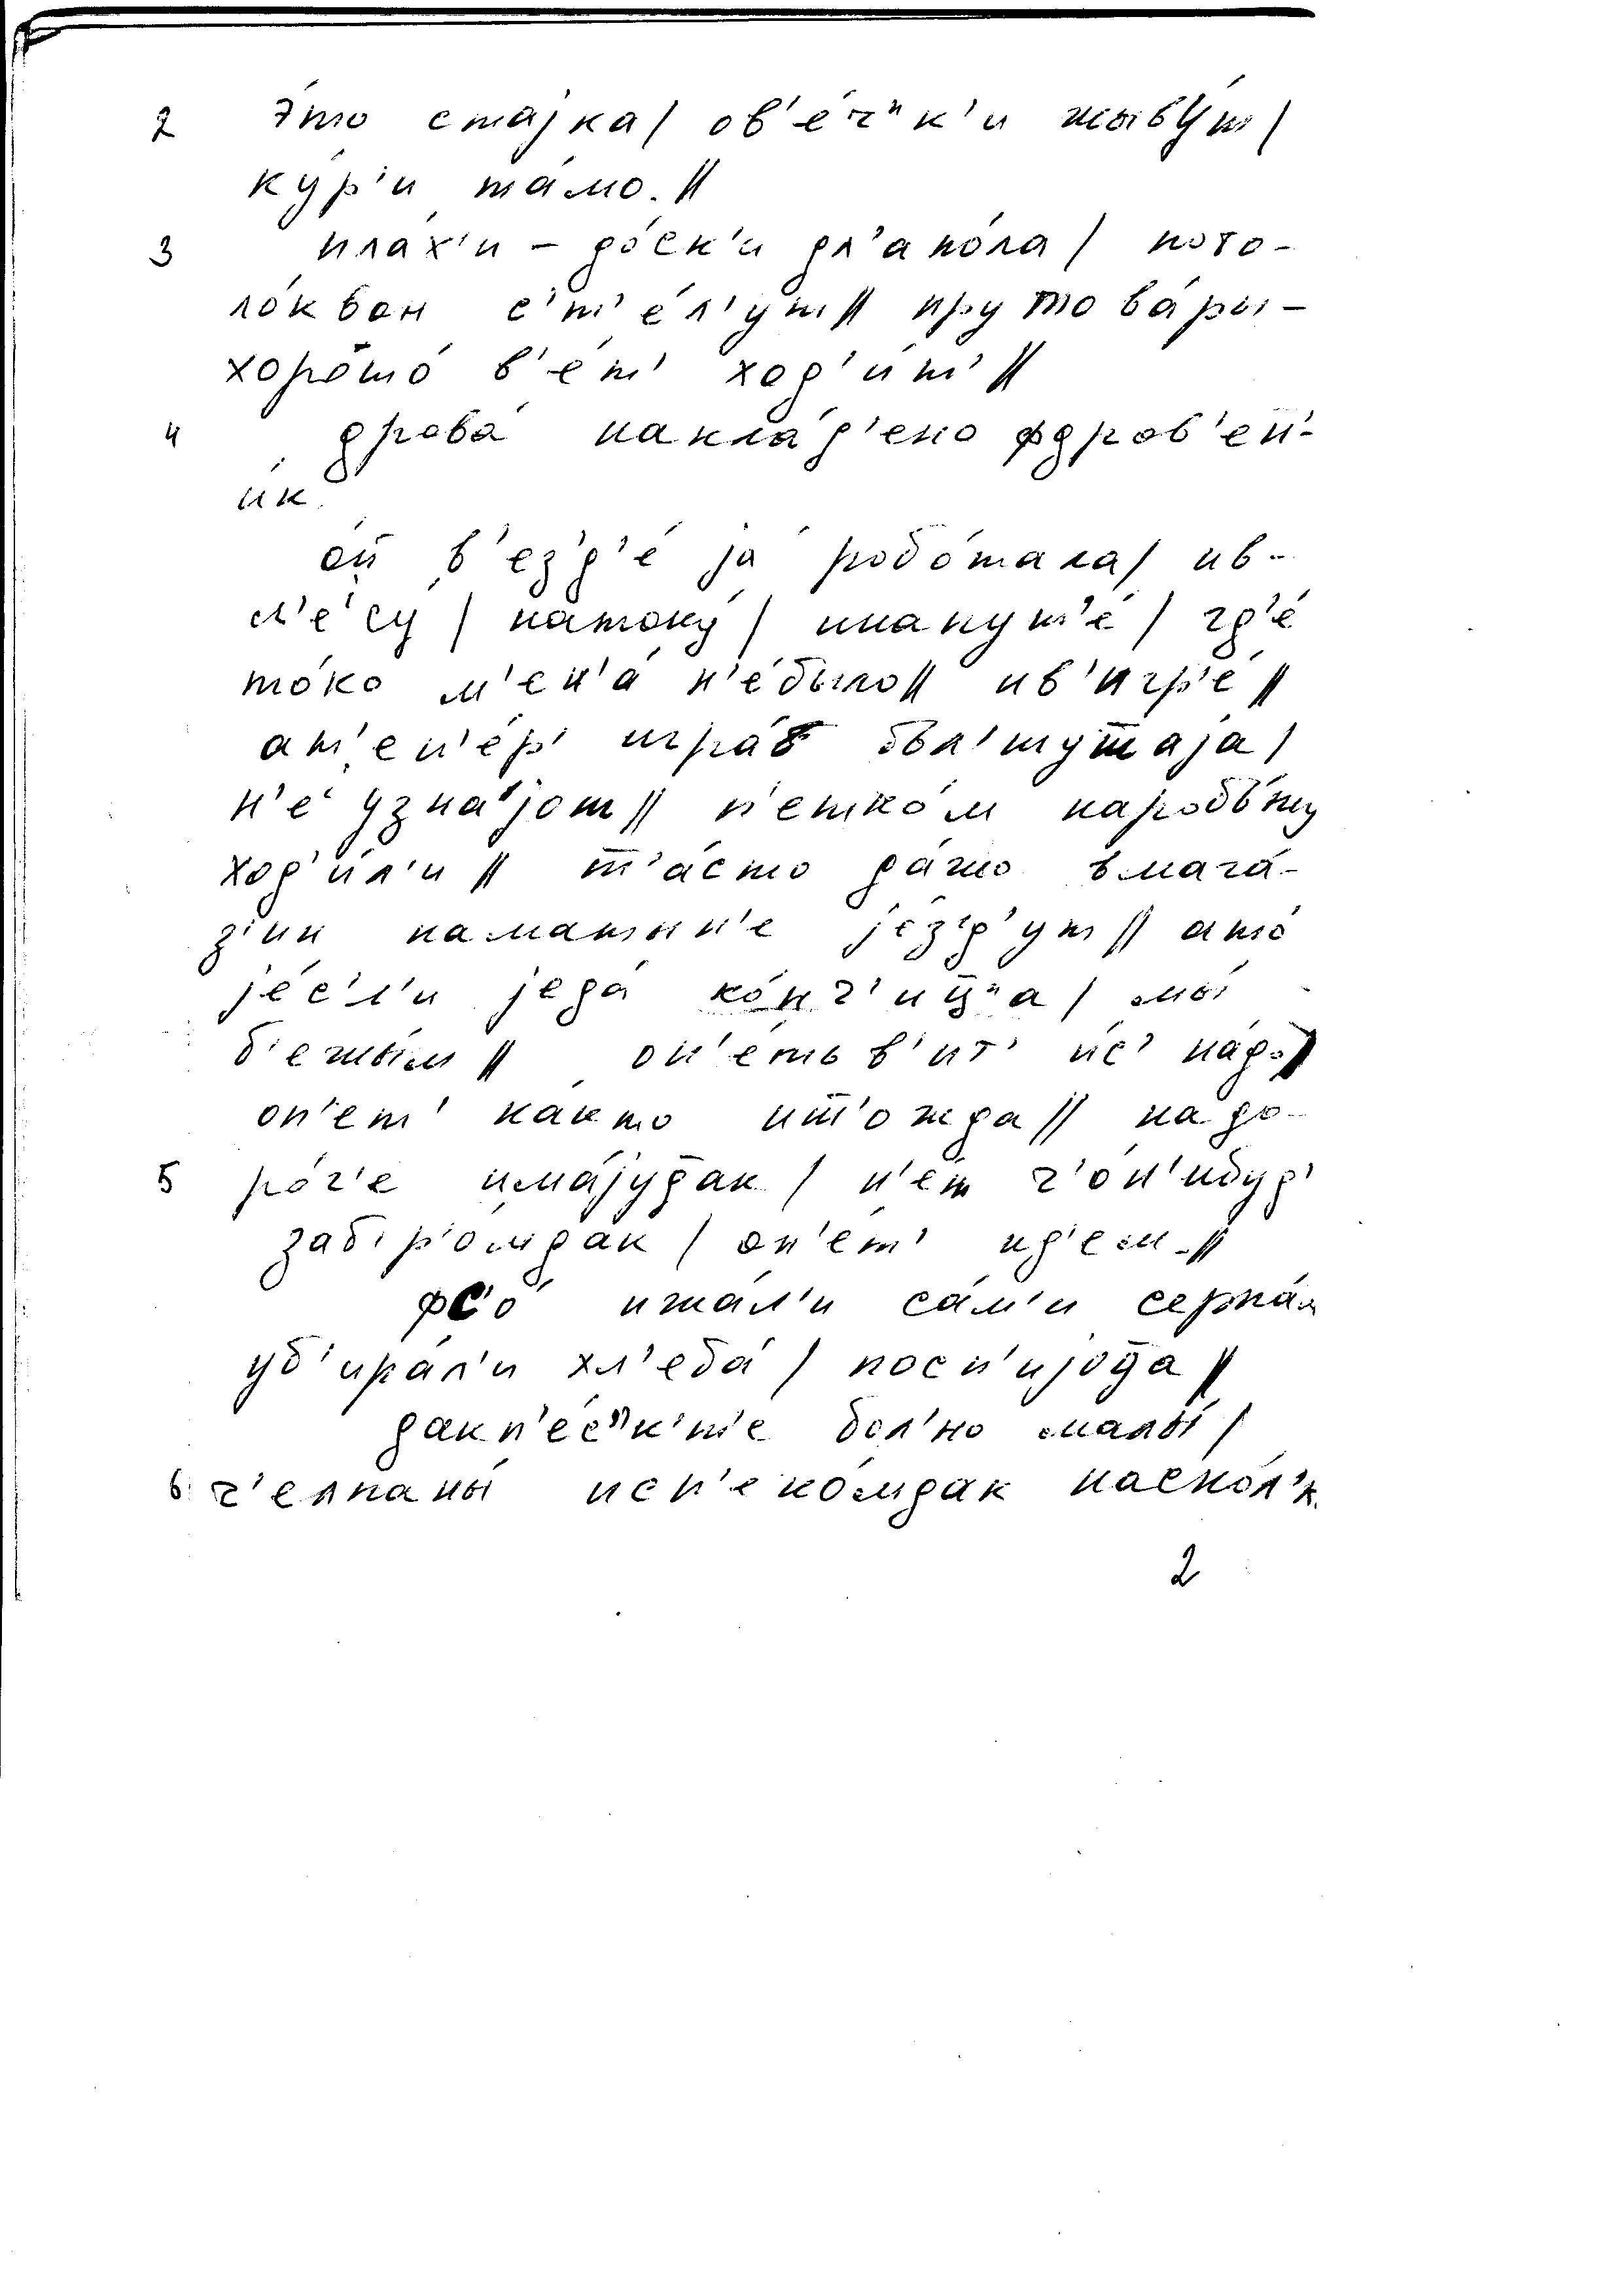 2 э́то стаjка / ов'е́ч"к'и жыву́т /
ку́р'и та́мо. //
3 пла́х'и – до́ск'и дл'апо́ла / пото-
ло́к вон с'т'е́л'ут // пру товары-
хорошо́ в'е́т' ход'и́т' //
4 дрова́ накла́д'ено фдров'ен'-
и́к.
ой в'ез'д'е́ jа робо́тала / ив-
л'есу́ / натоку́ / инапут'е́ / гд'е́
то́ко м'ен'а́ н'е́было // ив'игр'е́ //
ат'еп'е́р'
н'е узна́jот // п'ешко́м наробо́ту
ход'и́л'и // ш'а́с то да́жо вмага-
з'ин намашын'е jе́з'д'ут // а то́
jе́с'л'и jеда́ ко́нч'иц"а / мы́
б'ежы́м // оп'е́ть в'ит' йс' на́до //
оп'ет' ка́кто ит'ожда // надо-
5 ро́г'е има́jудак / н'е́т ч'о́н'ибуд'
заб'р'о́мдак / оп'е́т' ид'ем. //
фс'о́ ижа́л'и са́м'и серпа́м
уб'ира́л'и хл'еба́ / посп'иjо́ца //
дакп'е́с"к'т'е бол'но малы́ /
6 ч'елпаны́ исп'еко́мдак наско́л'к
2